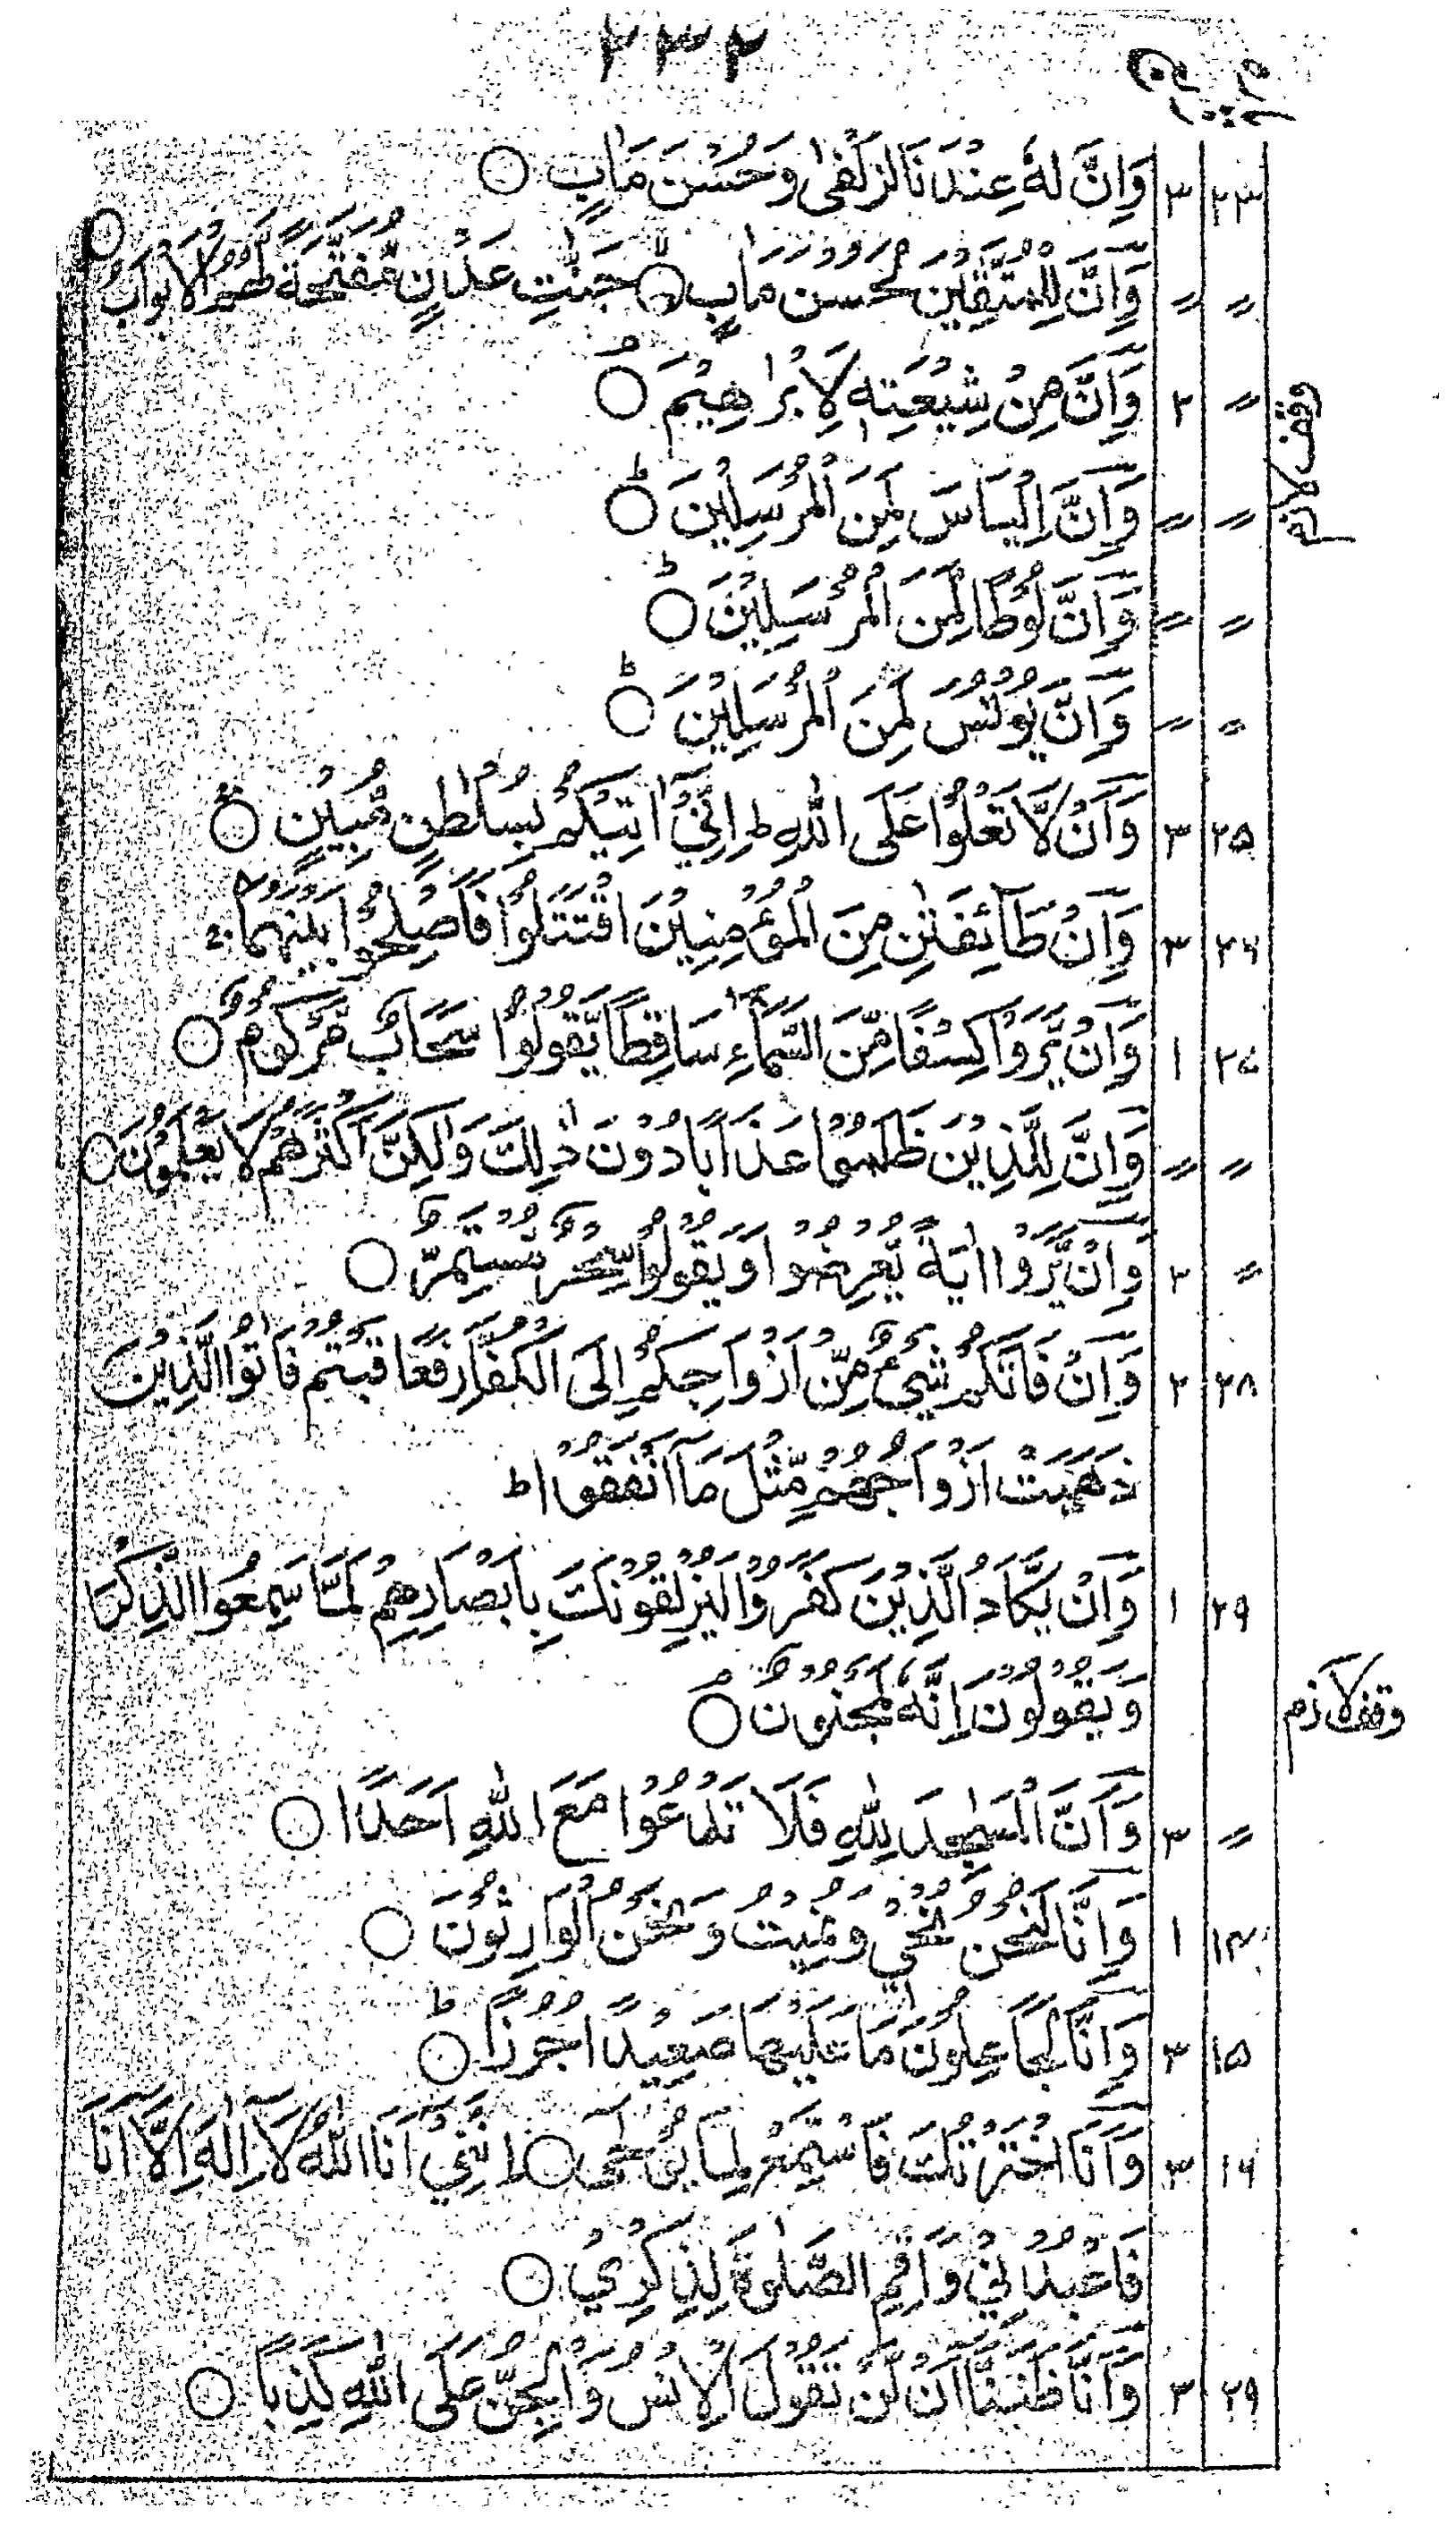 ۲۳۲
۲۳ ۳ وَاِنَّ لَهٗ عِنْدَنَا لَزُلْفٰی وَحُسْنَ مَاٰبٍ ○
〃 〃 وَاِنَّ لِلْمُتَّقِیْنَ لَحُسْنَ مَاٰبٍ ○ جَنّٰتِ عَدْنٍ مُّفَتَّحَةً لَّهُمُ الْاَبْوَابُ ○
〃 ۲ وَاِنَّ مِنْ شِیْعَتِهٖ لَاِبْرٰهِیْمَ ○ وقف لازم
〃 〃 وَاِنَّ اِلْیَاسَ لَمِنَ الْمُرْسَلِیْنَ ○ؕ
〃 〃 وَاِنَّ لُوْطًا لَّمِنَ الْمُرْسَلِیْنَ ○ؕ
〃 〃 وَاِنَّ یُوْنُسَ لَمِنَ الْمُرْسَلِیْنَ ○ؕ
۲۵ ۳ وَاَنْ لَّا تَعْلُوْا عَلَی اللّٰهِ ؕ اِنِّیْۤ اٰتِیْكُمْ بِسُلْطٰنٍ مُّبِیْنٍ ○
۲۶ ۳ وَاِنْ طَآئِفَتٰنِ مِنَ الْمُؤْمِنِیْنَ اقْتَتَلُوْا فَاَصْلِحُوْا بَیْنَهُمَا ۚ
۲۷ ۱ وَاِنْ یَّرَوْا كِسْفًا مِّنَ السَّمَآءِ سَاقِطًا یَّقُوْلُوْا سَحَابٌ مَّرْكُوْمٌ ○
〃 〃 وَاِنَّ لِلَّذِیْنَ ظَلَمُوْا عَذَابًا دُوْنَ ذٰلِكَ وَلٰكِنَّ اَكْثَرَهُمْ لَا یَعْلَمُوْنَ ○
〃 ۲ وَاِنْ یَّرَوْا اٰیَةً یُّعْرِضُوْا وَیَقُوْلُوْا سِحْرٌ مُّسْتَمِرٌّ ○
۲۸ ۲ وَاِنْ فَاتَكُمْ شَیْءٌ مِّنْ اَزْوَاجِكُمْ اِلَی الْكُفَّارِ فَعَاقَبْتُمْ فَاٰتُوا الَّذِیْنَ
ذَهَبَتْ اَزْوَاجُهُمْ مِّثْلَ مَاۤ اَنْفَقُوْا ؕ
۲۹ ۱ وَاِنْ یَّكَادُ الَّذِیْنَ كَفَرُوْا لَیُزْلِقُوْنَكَ بِاَبْصَارِهِمْ لَمَّا سَمِعُوا الذِّكْرَ
وَیَقُوْلُوْنَ اِنَّهٗ لَمَجْنُوْنٌ ○ وقف لازم
〃 ۳ وَاَنَّ الْمَسٰجِدَ لِلّٰهِ فَلَا تَدْعُوْا مَعَ اللّٰهِ اَحَدًا ○
۱۴ ۱ وَاِنَّا لَنَحْنُ نُحْیٖ وَنُمِیْتُ وَنَحْنُ الْوَارِثُوْنَ ○
۱۵ ۳ وَاِنَّا لَجَاعِلُوْنَ مَا عَلَیْهَا صَعِیْدًا جُرُزًا ○ؕ
۱۶ ۳ وَاَنَا اخْتَرْتُكَ فَاسْتَمِعْ لِمَا یُوْحٰی ○ اِنَّنِیْۤ اَنَا اللّٰهُ لَاۤ اِلٰهَ اِلَّاۤ اَنَا
فَاعْبُدْنِیْ وَاَقِمِ الصَّلٰوةَ لِذِكْرِیْ ○
۲۹ ۳ وَاَنَّا ظَنَنَّاۤ اَنْ لَّنْ تَقُوْلَ الْاِنْسُ وَالْجِنُّ عَلَی اللّٰهِ كَذِبًا ○